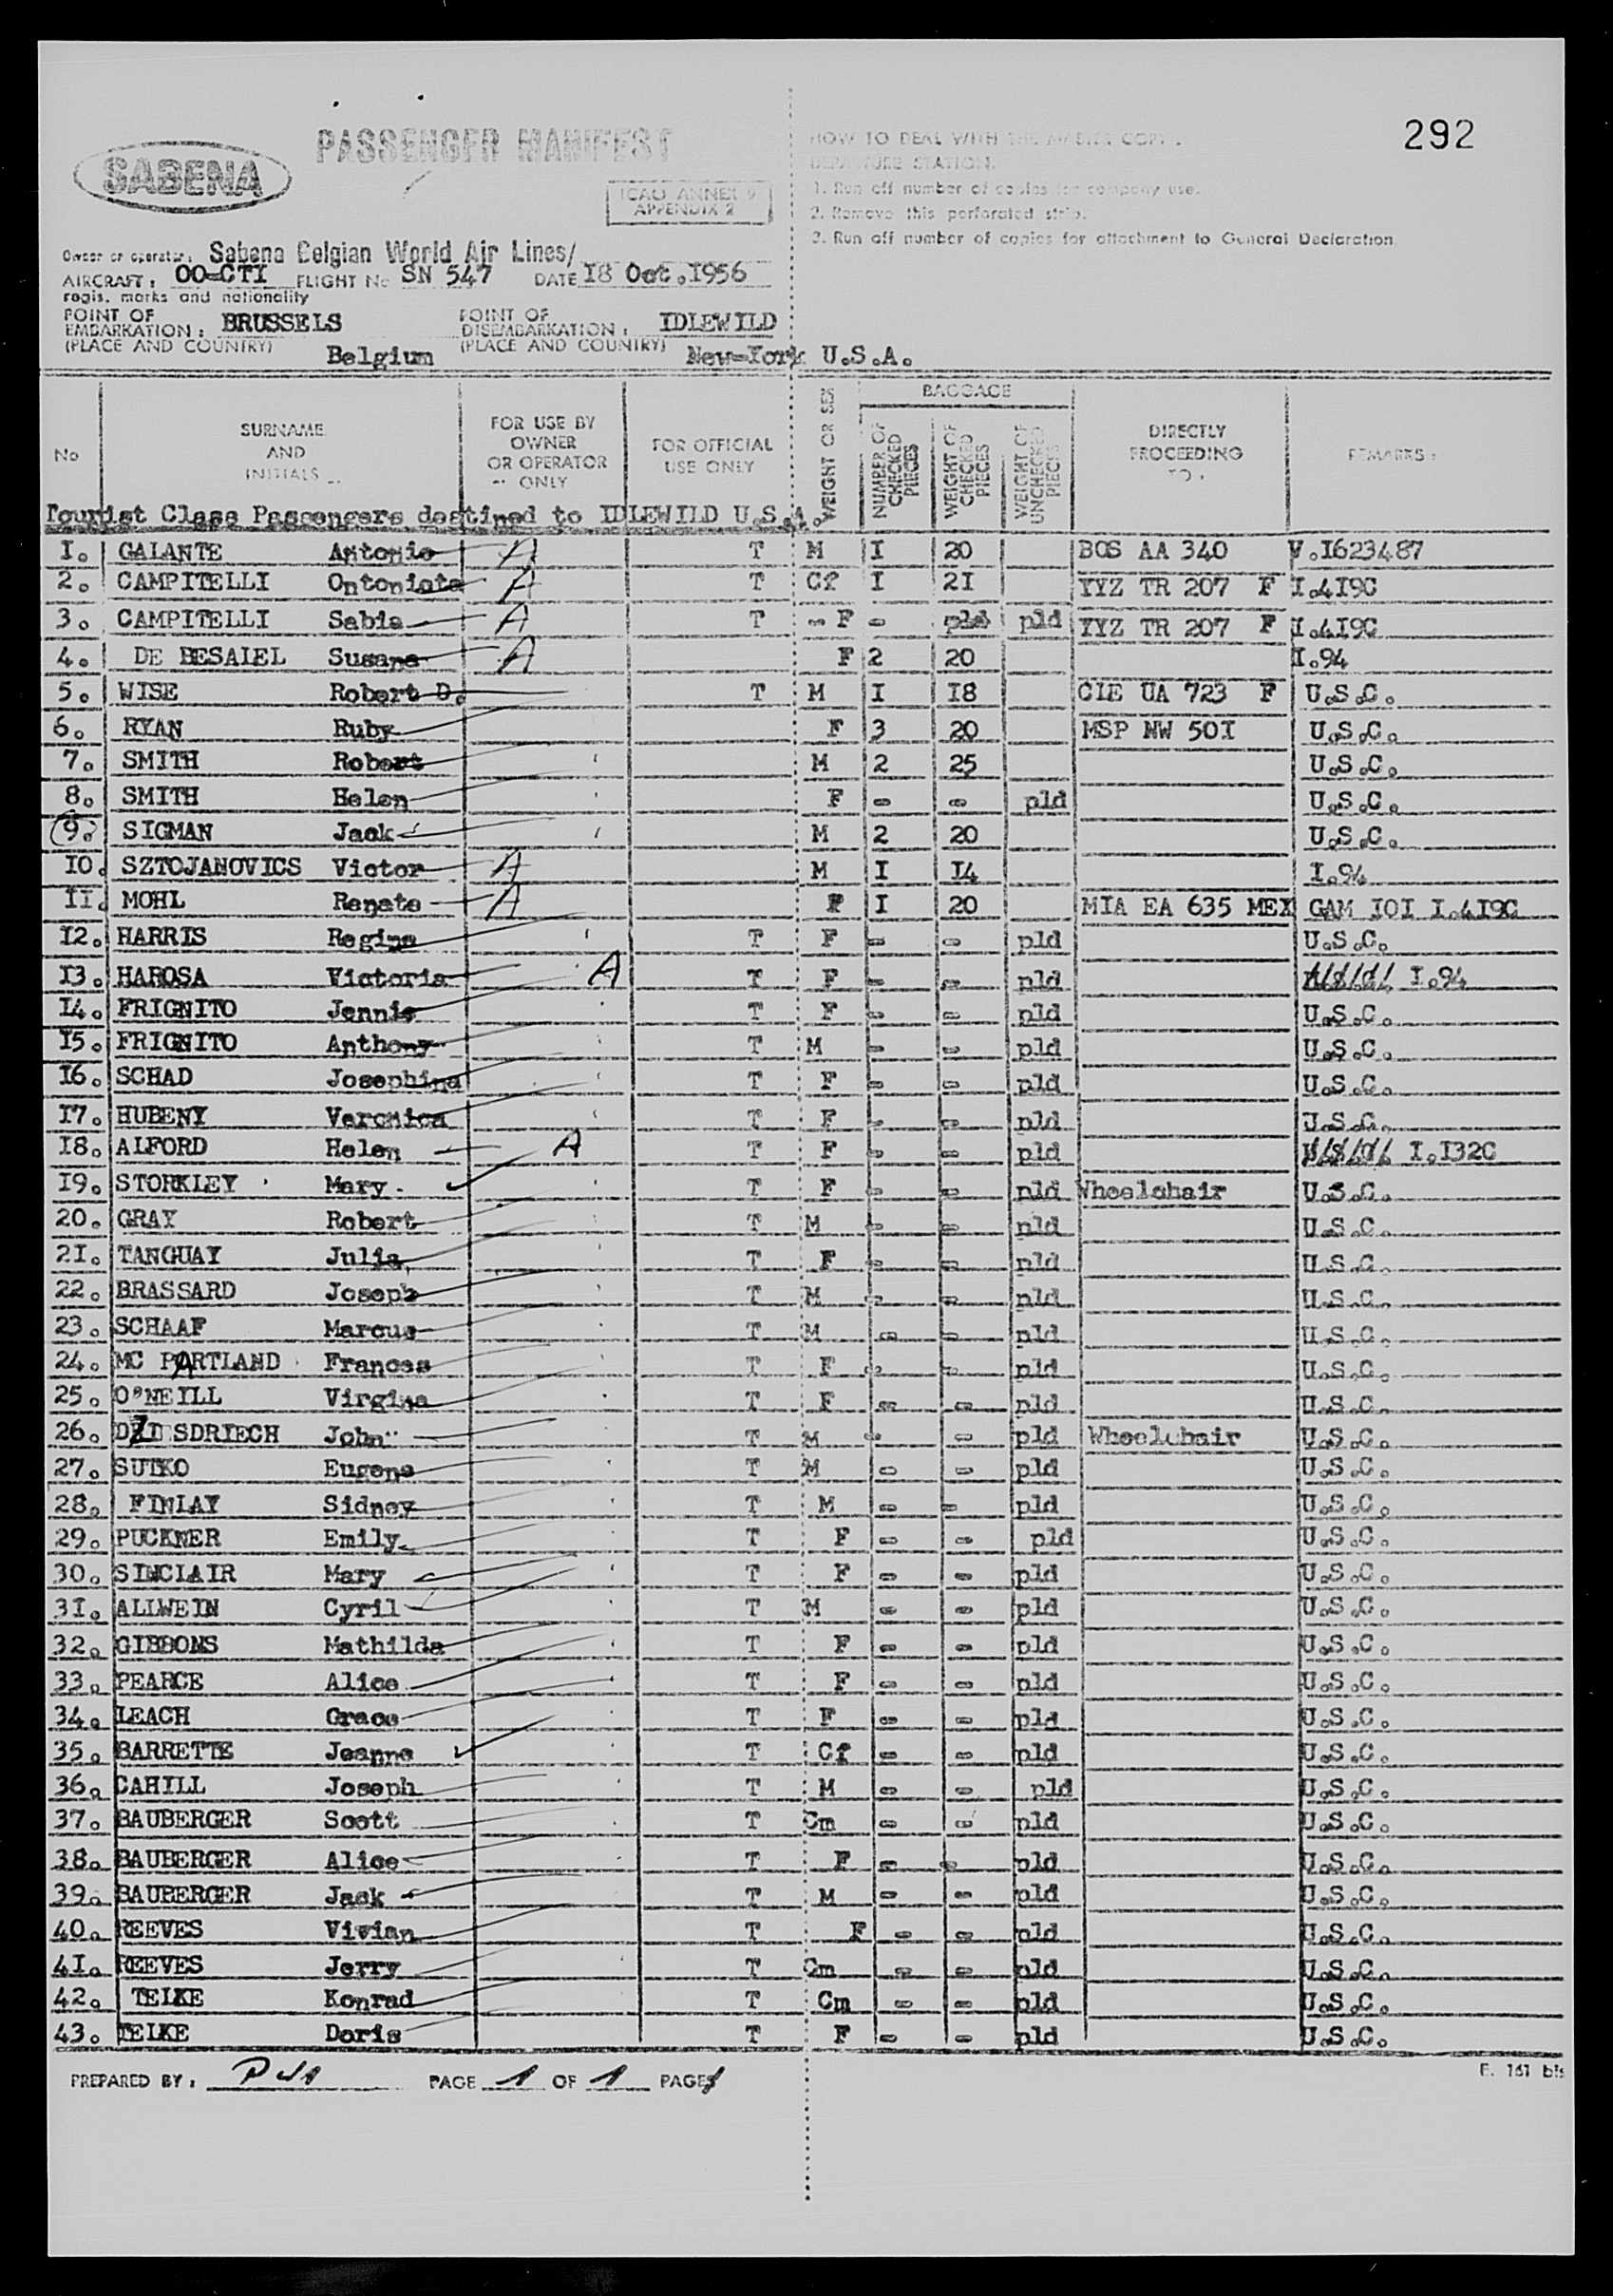 292
SABENA
PASSENGER MANIFEST
ICAO ANNEX 9
APPENDIX 2
HOW TO DEAL WITH THE MASTER COPY.
DEPARTURE STATION:
1. Run off number of copies for company use.
2. Remove this perforated strip.
3. Run off number of copies for attachment to General Declaration.
Owner or operator: Sabena Belgian World Air Lines/
AIRCRAFT: OO-CTI FLIGHT No SN 547 DATE I8 Oct.I956
regis. marks and nationality
POINT OF EMBARKATION: BRUSSELS POINT OF DISEMBARKATION: IDLEWILD
(PLACE AND COUNTRY) Belgium (PLACE AND COUNTRY) New-York U.S.A.
No SURNAME AND INITIALS FOR USE BY OWNER OR OPERATOR ONLY FOR OFFICIAL USE ONLY WEIGHT OR SEX BAGGAGE NUMBER OF CHECKED PIECES WEIGHT OF CHECKED PIECES WEIGHT OF UNCHECKED PIECES DIRECTLY PROCEEDING TO: REMARKS:
Tourist Class Passengers destined to IDLEWILD U.S.A.
I. GALANTE Antonio A T M I 20 BOS AA 340 V.I623487
2. CAMPITELLI Ontoniota A T Cf I 2I YYZ TR 207 F I.4I9C
3. CAMPITELLI Sabia A T - F - pld pld YYZ TR 207 F I.4I9C
4. DE BESAIEL Susana A F 2 20 I.94
5. WISE Robert D. T M I I8 CLE UA 723 F U.S.C.
6. RYAN Ruby F 3 20 MSP NW 50I U.S.C.
7. SMITH Robert M 2 25 U.S.C.
8. SMITH Helen F - - pld U.S.C.
9. SIGMAN Jack M 2 20 U.S.C.
I0. SZTOJANOVICS Victor A M I I4 I.94
II. MOHL Renate A F I 20 MIA EA 635 MEX GAM IOI I.4I9C
I2. HARRIS Regina T F - - pld U.S.C.
I3. HAROSA Victoria A T F - - pld I.94
I4. FRIGNITO Jennie T F - - pld U.S.C.
I5. FRIGNITO Anthony T M - - pld U.S.C.
I6. SCHAD Josephina T F - - pld U.S.C.
I7. HUBENY Veronica T F - - pld U.S.C.
I8. ALFORD Helen A T F - - pld I.I32C
I9. STORKLEY Mary T F - - pld Wheelchair U.S.C.
20. GRAY Robert T M - - pld U.S.C.
2I. TANGUAY Julia T F - - pld U.S.C.
22. BRASSARD Joseph T M - - pld U.S.C.
23. SCHAAF Marcus T M - - pld U.S.C.
24. MC PARTLAND Frances T F - - pld U.S.C.
25. O'NEILL Virgina T F - - pld U.S.C.
26. DZISDRIECH John T M - - pld Wheelchair U.S.C.
27. SUTKO Eugene T M - - pld U.S.C.
28. FINLAY Sidney T M - - pld U.S.C.
29. PUCKNER Emily T F - - pld U.S.C.
30. SINCLAIR Mary T F - - pld U.S.C.
3I. ALLWEIN Cyril T M - - pld U.S.C.
32. GIBBONS Mathilda T F - - pld U.S.C.
33. PEARCE Alice T F - - pld U.S.C.
34. LEACH Grace T F - - pld U.S.C.
35. BARRETTE Jeanne T Cf - - pld U.S.C.
36. CAHILL Joseph T M - - pld U.S.C.
37. BAUBERGER Scott T Cm - - pld U.S.C.
38. BAUBERGER Alice T F - - pld U.S.C.
39. BAUBERGER Jack T M - - pld U.S.C.
40. REEVES Vivian T F - - pld U.S.C.
4I. REEVES Jerry T Cm - - pld U.S.C.
42. TELKE Konrad T Cm - - pld U.S.C.
43. TELKE Doris T F - - pld U.S.C.
PREPARED BY: PAGE 1 OF 1 PAGES
E. 161 bis